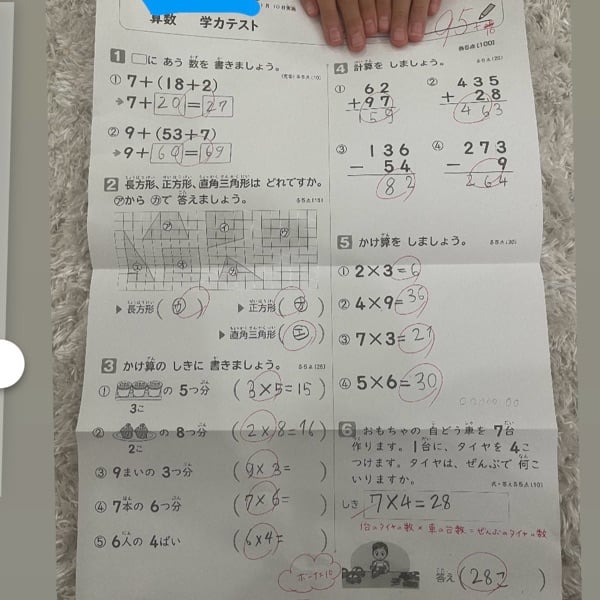 算数 学力テスト
月10日実施
95
各5点【100】
1 □に あう 数を 書きましょう。
(完答)各5点(10)
① 7+(18+2)
→7+20=27
② 9+(53+7)
→9+60=69
2 長方形、正方形、直角三角形は どれですか。
㋐から ㋕で 答えましょう。
各5点(15)
▶長方形(㋒)
▶正方形(㋕)
▶直角三角形(㋓)
3 かけ算の しきに 書きましょう。
各5点(25)
① の 5つ分 (3×5=15)
3こ
② の 8つ分 (2×8=16)
2こ
③ 9まいの 3つ分 (9×3= )
④ 7本の 6つ分 (7×6= )
⑤ 6人の 4ばい (6×4= )
4 計算を しましょう。
各5点(20)
① 62
+97
159
② 435
+ 28
463
③ 136
− 54
82
④ 273
− 9
264
5 かけ算を しましょう。
各5点(20)
① 2×3=6
② 4×9=36
③ 7×3=21
④ 5×6=30
6 おもちゃの 自どう車を 7台
作ります。1台に、タイヤを 4こ
つけます。タイヤは、ぜんぶで 何こ
いりますか。
式・答え各5点(10)
しき 7×4=28
1台のタイヤの数 × 車の台数=ぜんぶのタイヤの数
答え(28こ)